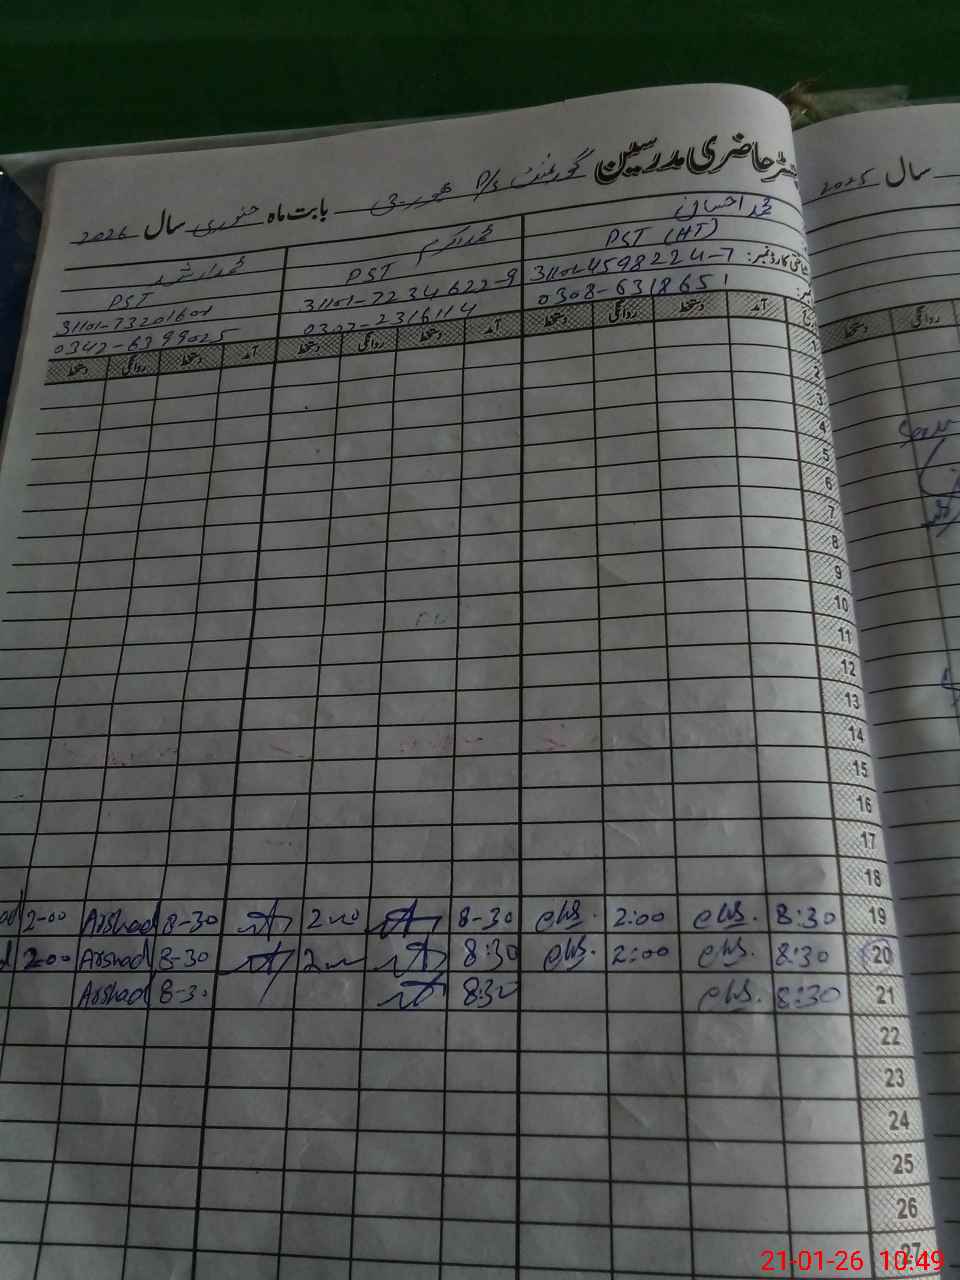 رجسٹر حاضری مدرسین گورنمنٹ P/S بابت ماہ جنوری سال 2026
سال 2025
محمد احسان محمد اکرم محمد ارشد
PST (HT) PST PST
شناختی کارڈ نمبر: 31101-4598224-7 31101-7234622-9
0308-6318651 0302-2316114 0342-6399025
تاریخ آمد دستخط روانگی دستخط آمد دستخط روانگی دستخط آمد دستخط روانگی دستخط
روانگی دستخط
2
3
4
5
6
7
8
9
10
11
12
13
14
15
16
17
18
19 8:30 2:00 8-30 8-30 Arshad 2-00
20 8:30 2:00 8:30 8-30 Arshad 2-00
21 8:30 8:30 8-30 Arshad
22
23
24
25
26
27
21-01-26 10:49